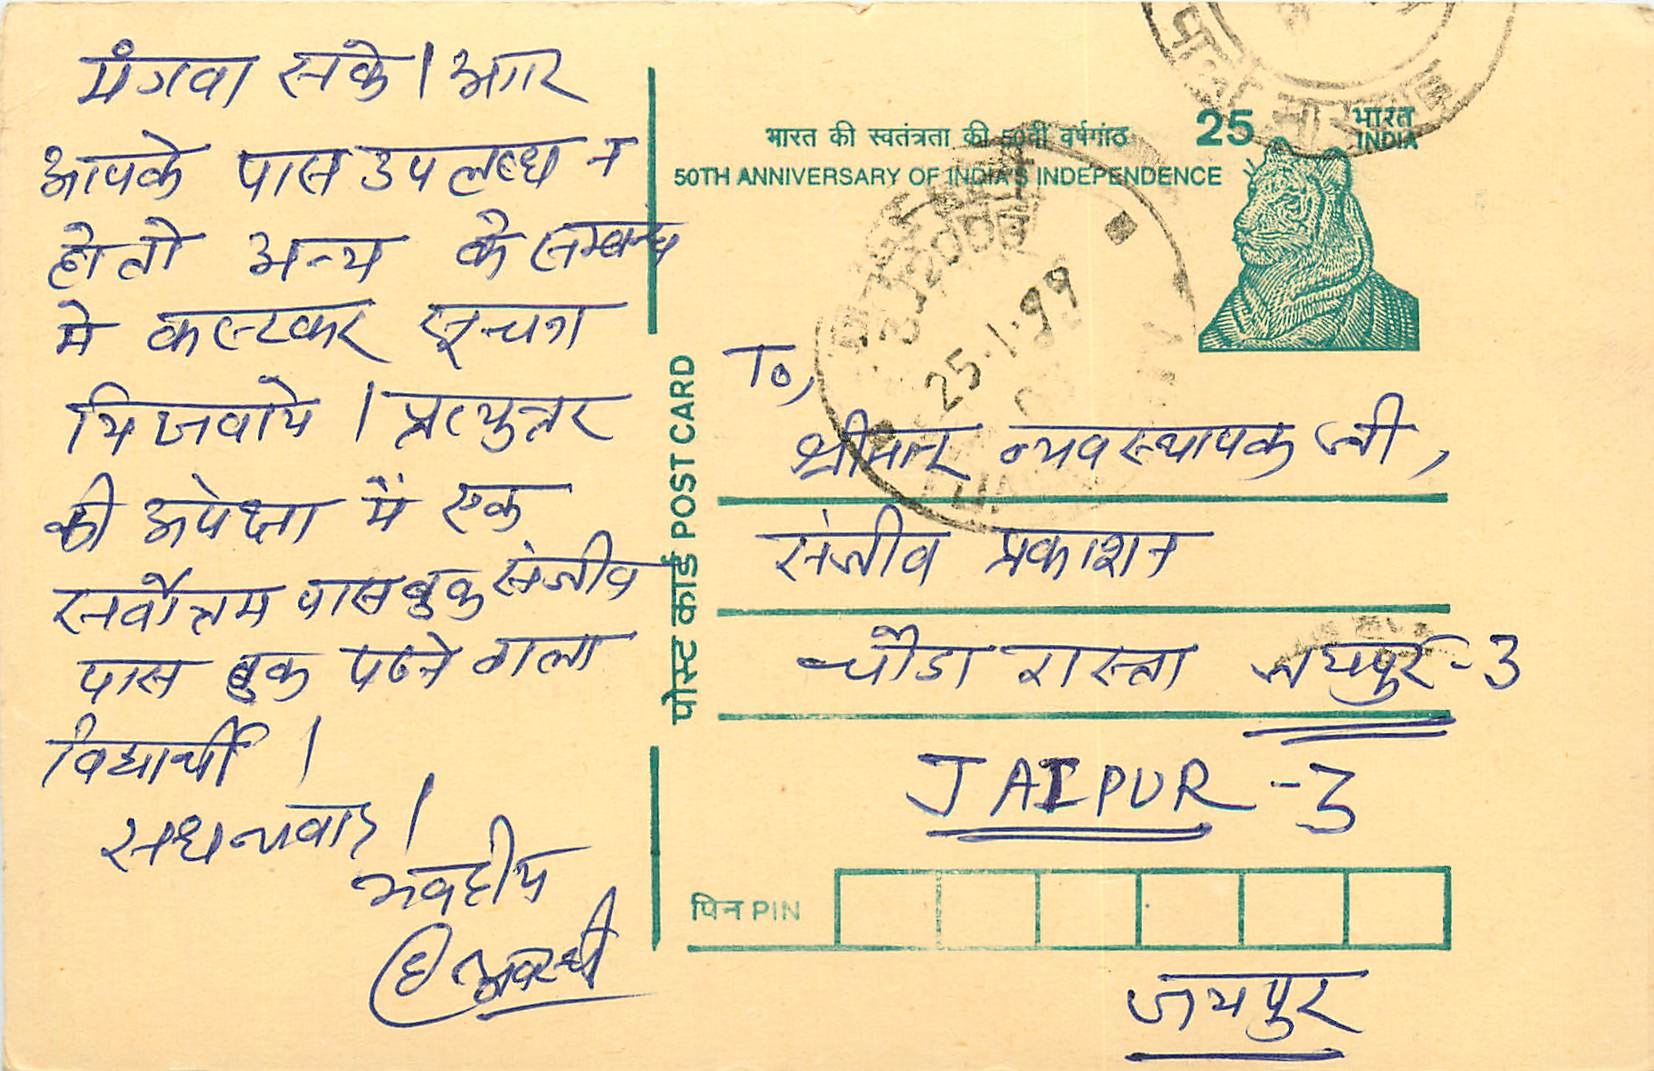 मंगवा सके। अगर
आपके पास उपलब्ध न
हो तो अन्य के सम्बन्ध
मे कष्टकर सूचना
भिजवाये। प्रत्युत्तर
की अपेक्षा में एक
सर्वोत्तम पास बुक संजीव
पास बुक पढने वाला
विद्यार्थी।
सधन्यवाद।
भवदीय
अवस्थी
भारत की स्वतंत्रता की 50वीं वर्षगांठ
50TH ANNIVERSARY OF INDIA'S INDEPENDENCE
25
भारत
INDIA
25.1.99
पोस्ट कार्ड POST CARD
To,
श्रीमान व्यवस्थापक जी,
संजीव प्रकाशन
चौडा रास्ता जयपुर-3
JAIPUR-3
पिन PIN
जयपुर